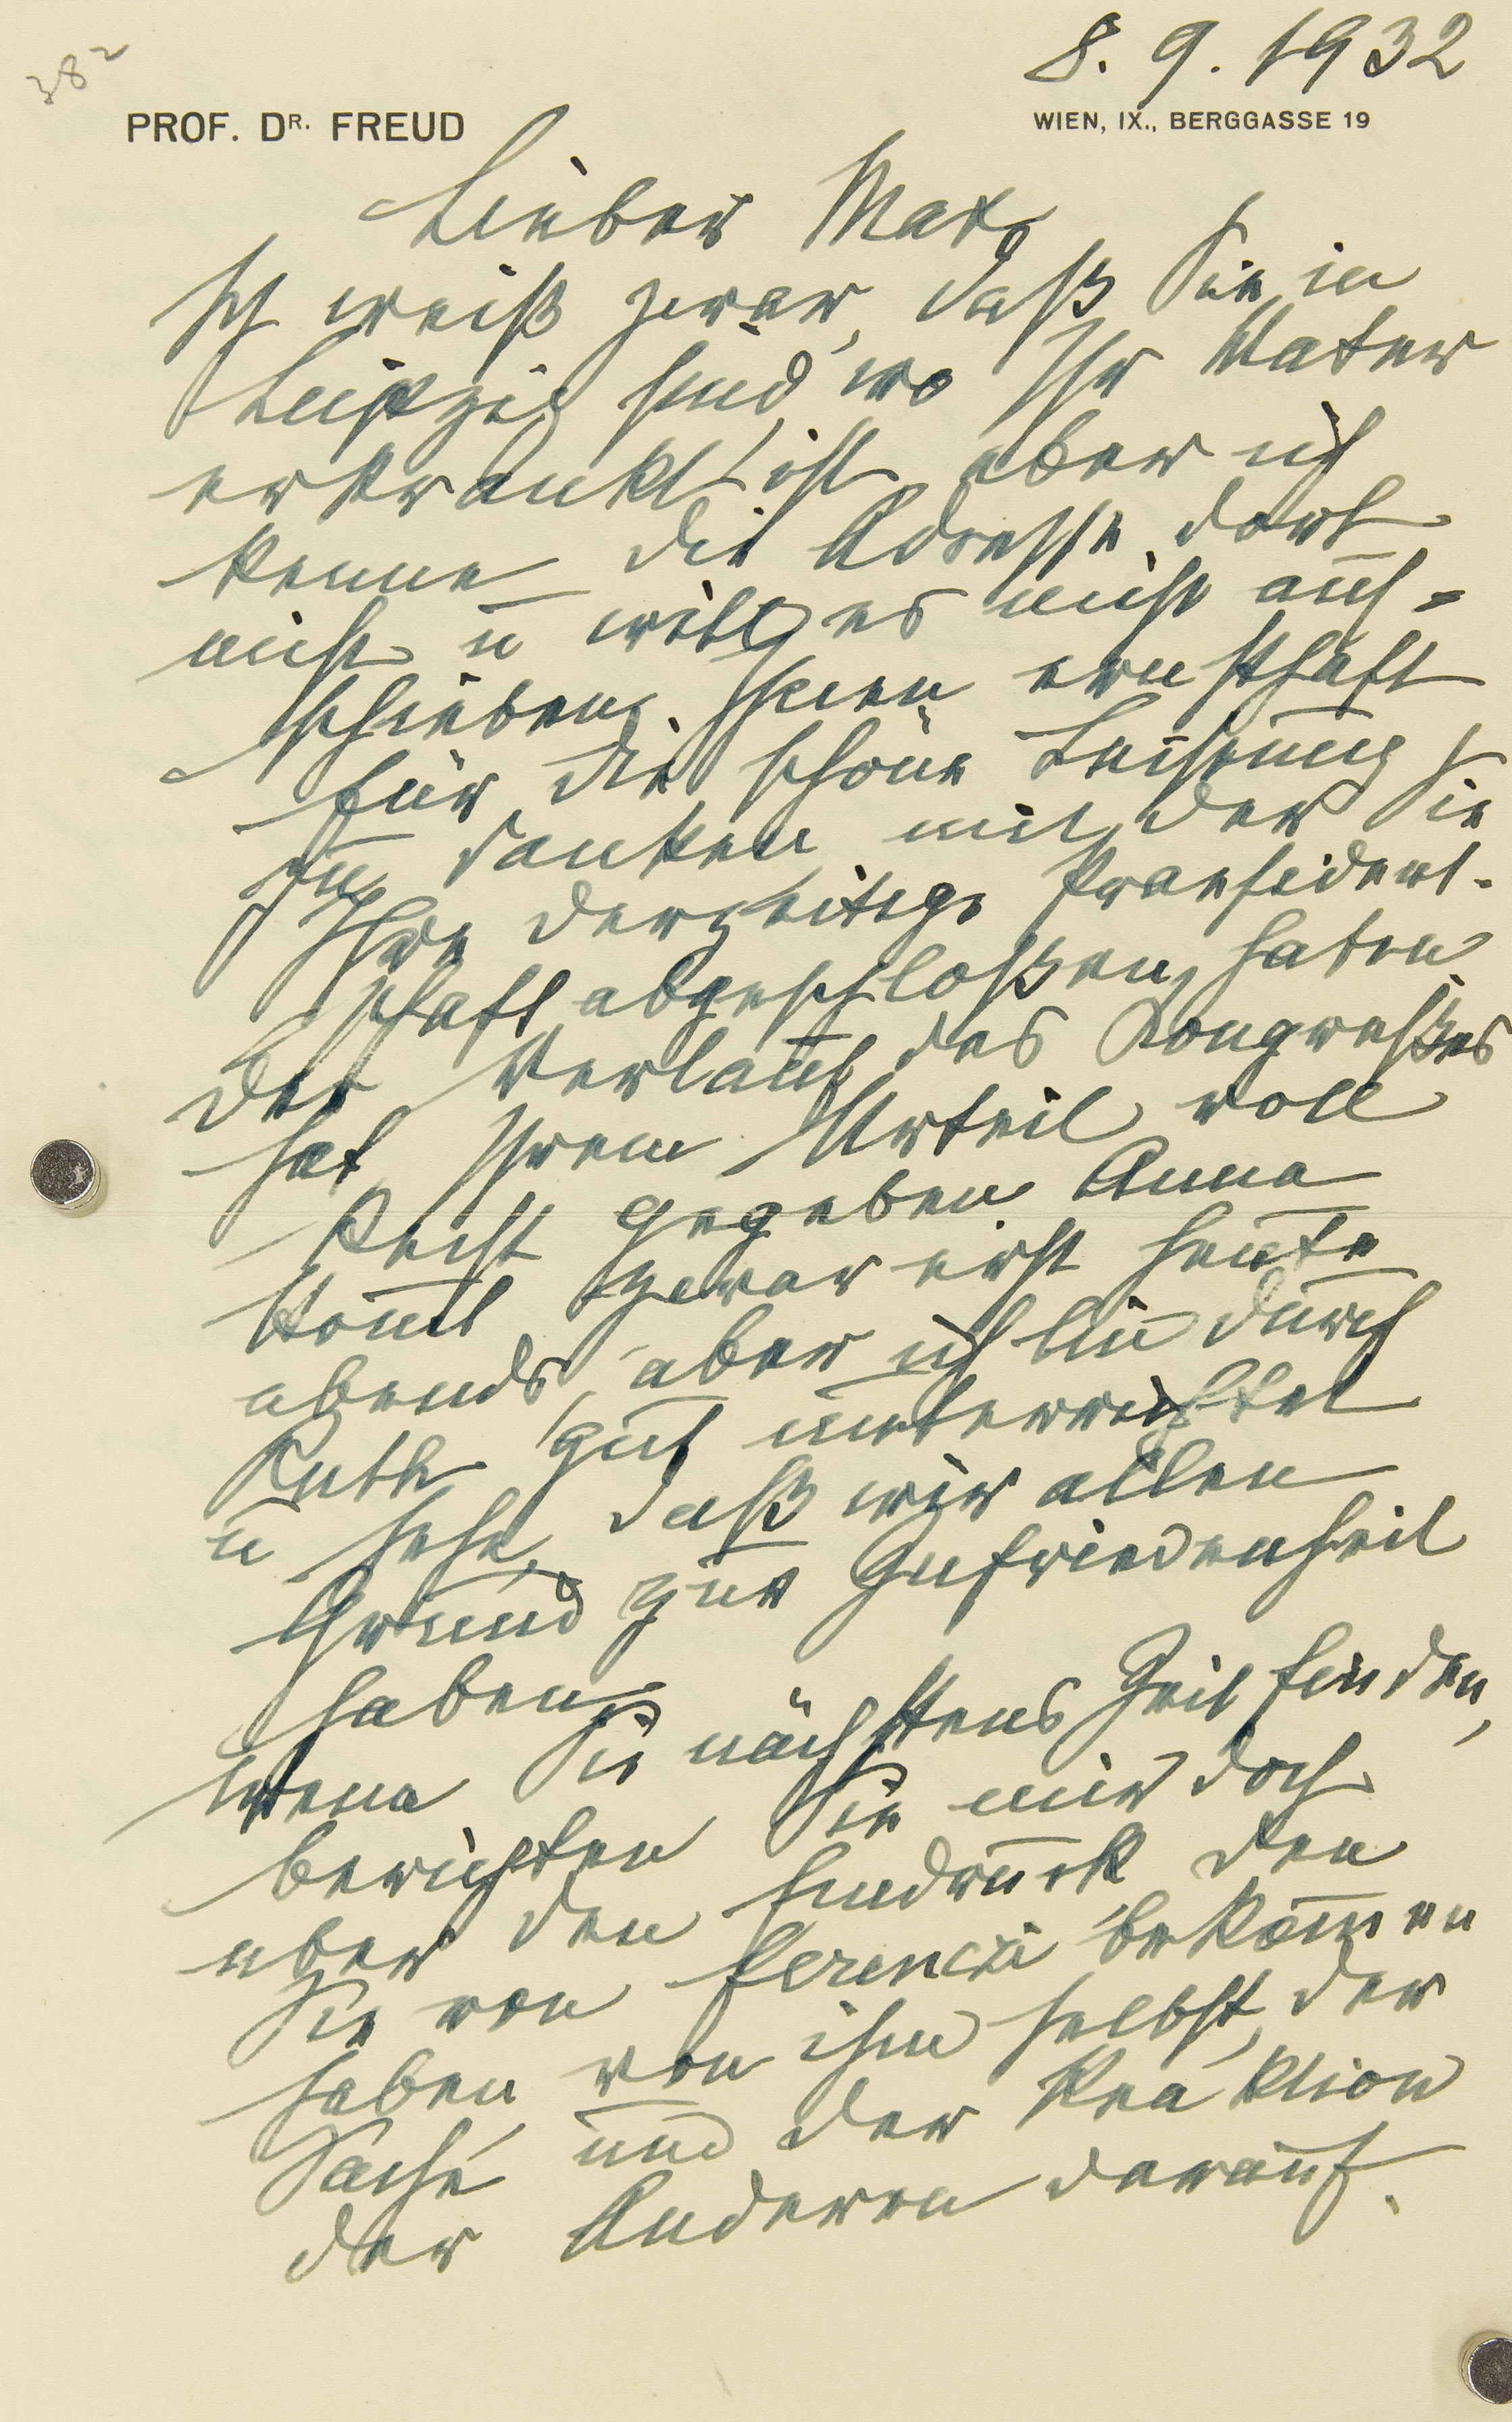 382
8. 9. 1932
PROF. DR. FREUD
WIEN, IX., BERGGASSE 19
Lieber Max
Ich weiß zwar, daß Sie in
Leipzig sind, wo Ihr Vater
erkrankt ist, aber ich
kenne die Adresse dort
nicht u will es nicht auf-
schieben, Ihnen ernsthaft
für die schöne Leistung
zu danken, mit der Sie
Ihre derzeitige Praesident-
schaft abgeschloßen haben.
Der Verlauf des Kongreßes
hat Ihrem Urteil voll
Recht gegeben. Anna
kom̄t zwar erst heute
abends, aber ich bin durch
Ruth gut unterrichtet
u sehe, daß wir allen
Grund zur Zufriedenheit
haben.
Wenn Sie nächstens Zeit finden,
berichten Sie mir doch
über den Eindruck den
Sie von Ferenczi bekom̄en
haben, von ihm selbst, der
Sache und der Reaktion
der Anderen darauf.